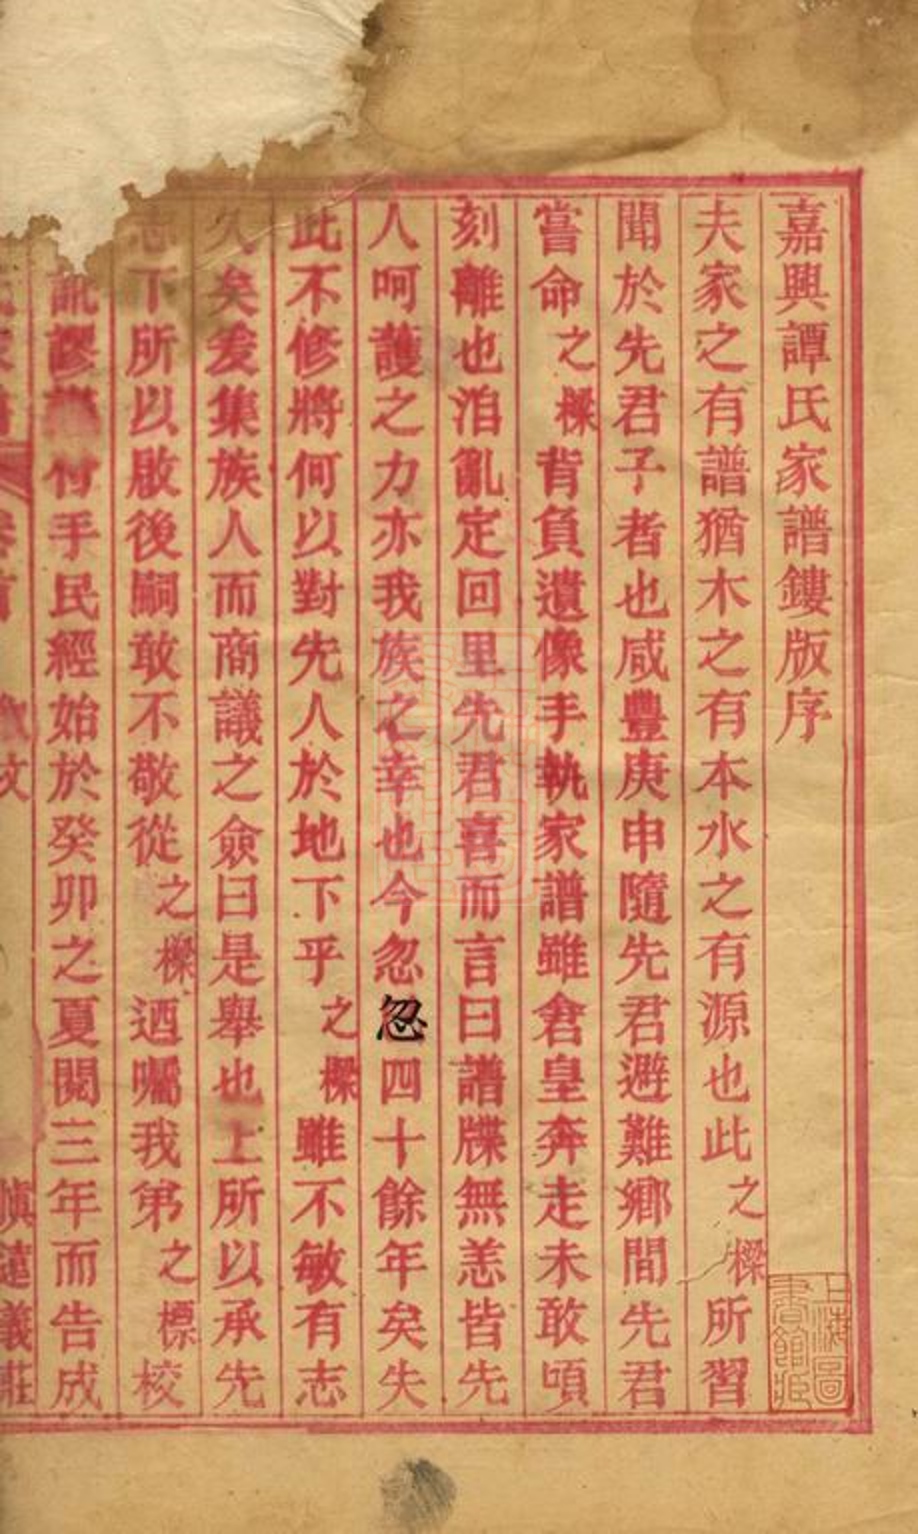 嘉興譚氏家譜鏤版序
夫家之有譜猶木之有本水之有源也此之樑所習
聞於先君子者也咸豐庚申隨先君避難鄉間先君
嘗命之樑背負遺像手執家譜雖倉皇奔走未敢頃
刻離也洎亂定回里先君喜而言曰譜牒無恙皆先
人呵護之力亦我族之幸也今忽忽四十餘年矣失
此不修將何以對先人於地下乎之樑雖不敏有志
久矣爰集族人而商議之僉曰是舉也上所以承先
志下所以啟後嗣敢不敬從之樑迺囑我弟之標校
訛謬付手民經始於癸卯之夏閱三年而告成
慎遠義莊
上海圖書館藏